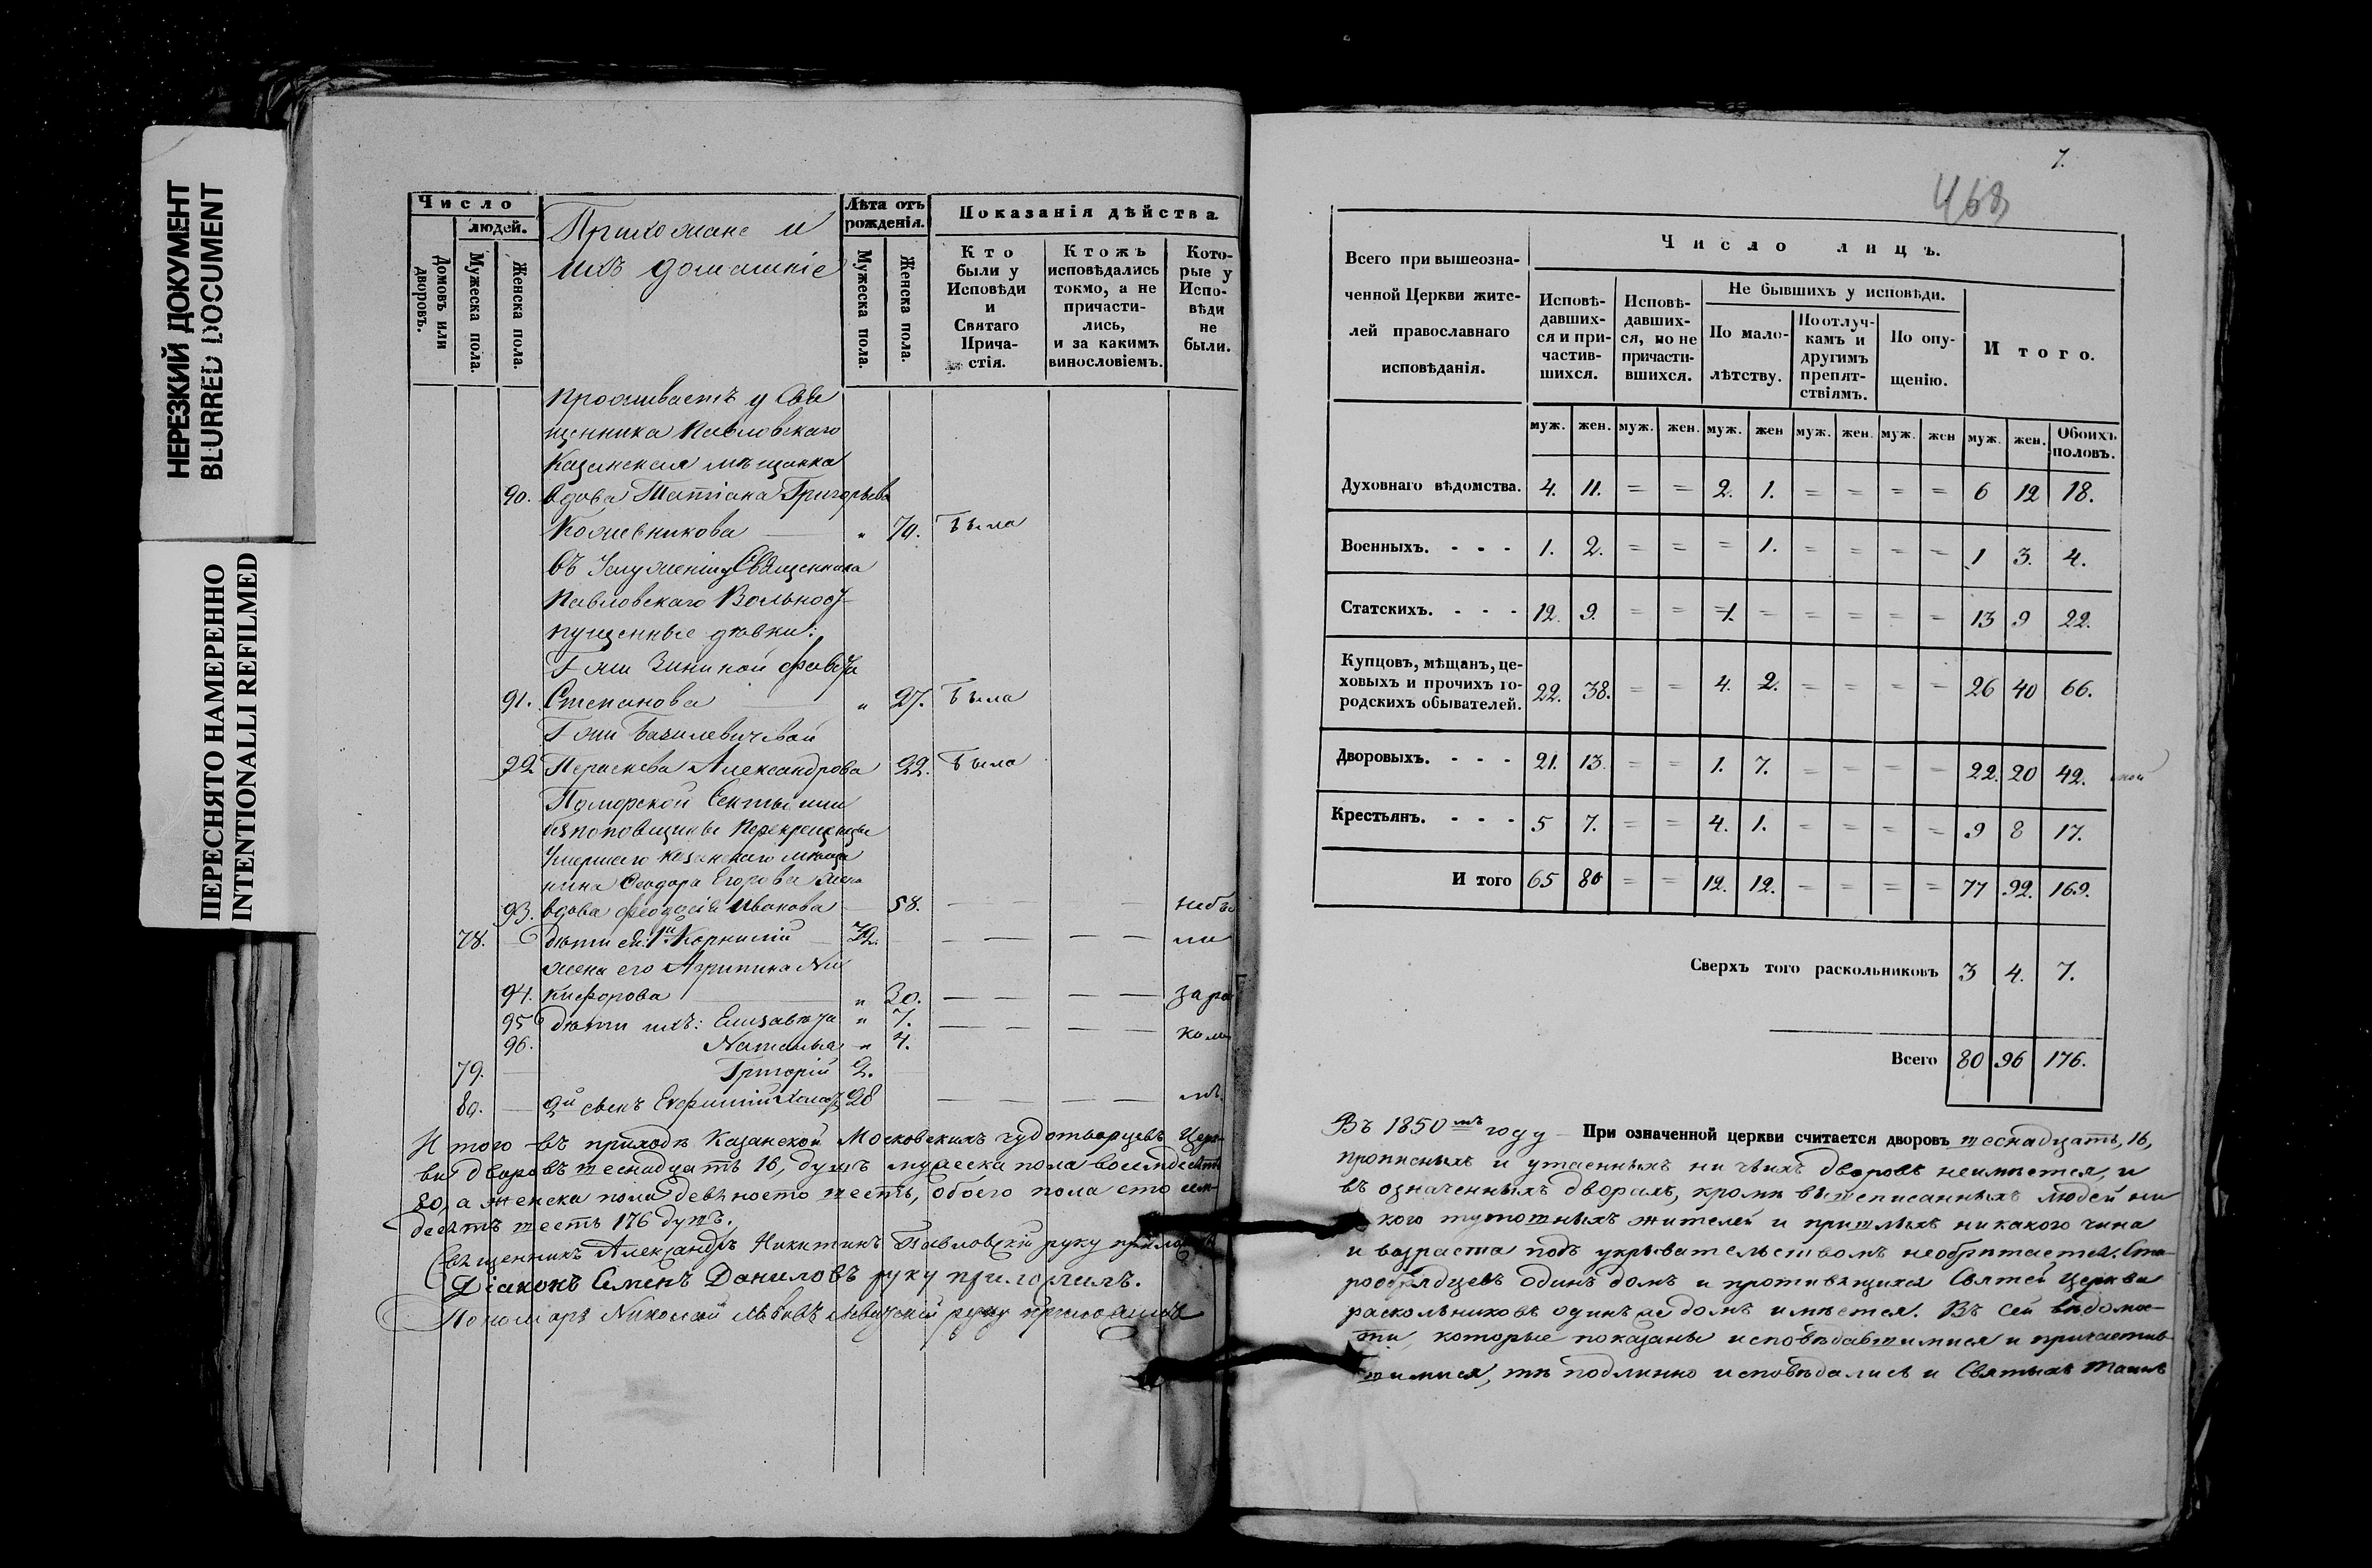 НЕРЕЗКИЙ ДОКУМЕНТ
BLURRED DOCUMENT
ПЕРЕСНЯТО НАМЕРЕННО
INTENTIONALLI REFILMED
Число
людей.
Домовъ или дворовъ.
Мужеска пола.
Женска пола.
Прихожане и
ихъ домашніе
Лѣта отъ
рожденія.
Мужеска пола.
Женска пола.
Показанія дѣйства
Кто
были у
Исповѣди
и
Святаго
Прича-
стія.
Ктожъ
исповѣдались
токмо, а не
причасти-
лись,
и за какимъ
винословіемъ.
Кото-
рые у
Испо-
вѣди
не
были.
проживаетъ у Свя
щенника Павловскаго
Казанская мѣщанка
90. вдова Татіана Григорьева
Кожевникова " 70. Была
въ Услуженіи у Священника
Павловскаго Вольноот
пущенные дѣвки:
Г жи Зининой Өавста
91. Степанова " 27. Была
Г жи Базилевичевой
92 Параскева Александрова 22. Была
Поморской Секты или
безпоповщины перекрещенцы
Умершаго казанскаго мѣща
нина Ѳеодора Егорова жена
93. вдова Ѳеодосія Иванова 58. — — — — небы
78. дѣти ея: 1й Корнилій 32. — — — — ли
жена его Агрипина Ни
94. кифорова " 30. — — — — за ра
95 дѣти ихъ: Елизавета " 7. — — — — коло
96. Наталья " 4.
79. Григорій 2.
80. 2й сынъ Евфимій холост 28 — — — — мъ
Итого въ приходѣ Казанской Московскихъ чудотворцевъ Церк-
ви дворовъ шеснадцать 16, душъ мужеска пола восемдесятъ
80, а женска пола девяносто шесть, обоего пола сто сем-
десятъ шесть 176 душъ.
Священникъ Александръ Никитинъ Павловскій руку приложилъ
Діаконъ Семенъ Даниловъ руку приложилъ.
Пономарь Николай Львовъ руку приложилъ
7.
468
Всего при вышеозна-
ченной Церкви жите-
лей православнаго
исповѣданія.
Число лицъ.
Исповѣ-
давших-
ся и при-
частив-
шихся.
Исповѣ-
давших-
ся, но не
причасти-
вшихся.
Не бывшихъ у исповѣди.
По мало-
лѣтству.
По отлуч-
камъ и
другимъ
препят-
ствіямъ.
По опу-
щенію.
Итого.
муж. жен. муж. жен. муж. жен муж. жен. муж. жен муж. жен. Обоихъ половъ.
Духовнаго вѣдомства. 4. 11. = = 2. 1. = = = = 6 12 18.
Военныхъ. - - - 1. 2. = = = 1. = = = = 1 3. 4.
Статскихъ. - - - 12. 9. = = 1. = = = = = 13 9 22.
Купцовъ, мѣщанъ, це-
ховыхъ и прочихъ го-
родскихъ обывателей. 22. 38. = = 4. 2. = = = = 26 40 66.
Дворовыхъ. - - - 21. 13. = = 1. 7. = = = = 22. 20 42.
Крестьянъ. - - - 5 7. = = 4. 1. = = = = 9 8 17.
Итого 65 80 = = 12. 12. = = = = 77 92. 169.
Сверхъ того раскольниковъ 3 4. 7.
Всего 80 96 176.
Въ 1850мъ году При означенной церкви считается дворовъ шеснадцать, 16,
прописныхъ и утаенныхъ ни чьихъ дворовъ неимѣется, и
въ означенныхъ дворахъ, кромѣ вышеписанныхъ людей ни
кого тутошныхъ жителей и пришлыхъ никакого чина
и возраста подъ укрывательствомъ необрѣтается. Ста-
рообрядцевъ одинъ домъ и противящихся Святей Церкви
раскольниковъ одинъ же домъ имѣется. Въ сей вѣдомос-
ти, которые показаны исповѣдавшимися и причастив-
шимися, тѣ подлинно исповѣдались и Святыхъ Таинъ